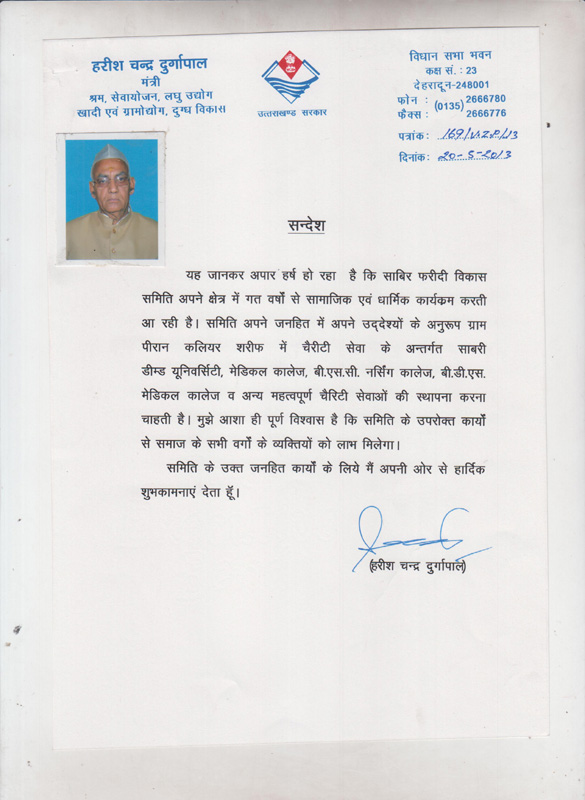 हरीश चन्द्र दुर्गापाल
मंत्री
श्रम, सेवायोजन, लघु उद्योग
खादी एवं ग्रामोद्योग, दुग्ध विकास
उत्तराखण्ड सरकार
विधान सभा भवन
कक्ष सं. : 23
देहरादून-248001
फोन : (0135) 2666780
फैक्स : 2666776
पत्रांक: 169/V.I.P/13
दिनांक: 20-5-2013
सन्देश
यह जानकर अपार हर्ष हो रहा है कि साबिर फरीदी विकास
समिति अपने क्षेत्र में गत वर्षो से सामाजिक एवं धार्मिक कार्यक्रम करती
आ रही है। समिति अपने जनहित में अपने उद्देश्यों के अनुरूप ग्राम
पीरान कलियर शरीफ में चैरीटी सेवा के अन्तर्गत साबरी
डीम्ड यूनिवर्सिटी, मेडिकल कालेज, बी.एस.सी. नर्सिंग कालेज, बी.डी.एस.
मेडिकल कालेज व अन्य महत्वपूर्ण चैरिटी सेवाओं की स्थापना करना
चाहती है। मुझे आशा ही पूर्ण विश्वास है कि समिति के उपरोक्त कार्यों
से समाज के सभी वर्गों के व्यक्तियों को लाभ मिलेगा।
समिति के उक्त जनहित कार्यों के लिये मैं अपनी ओर से हार्दिक
शुभकामनाएं देता हूँ।
(हरीश चन्द्र दुर्गापाल)